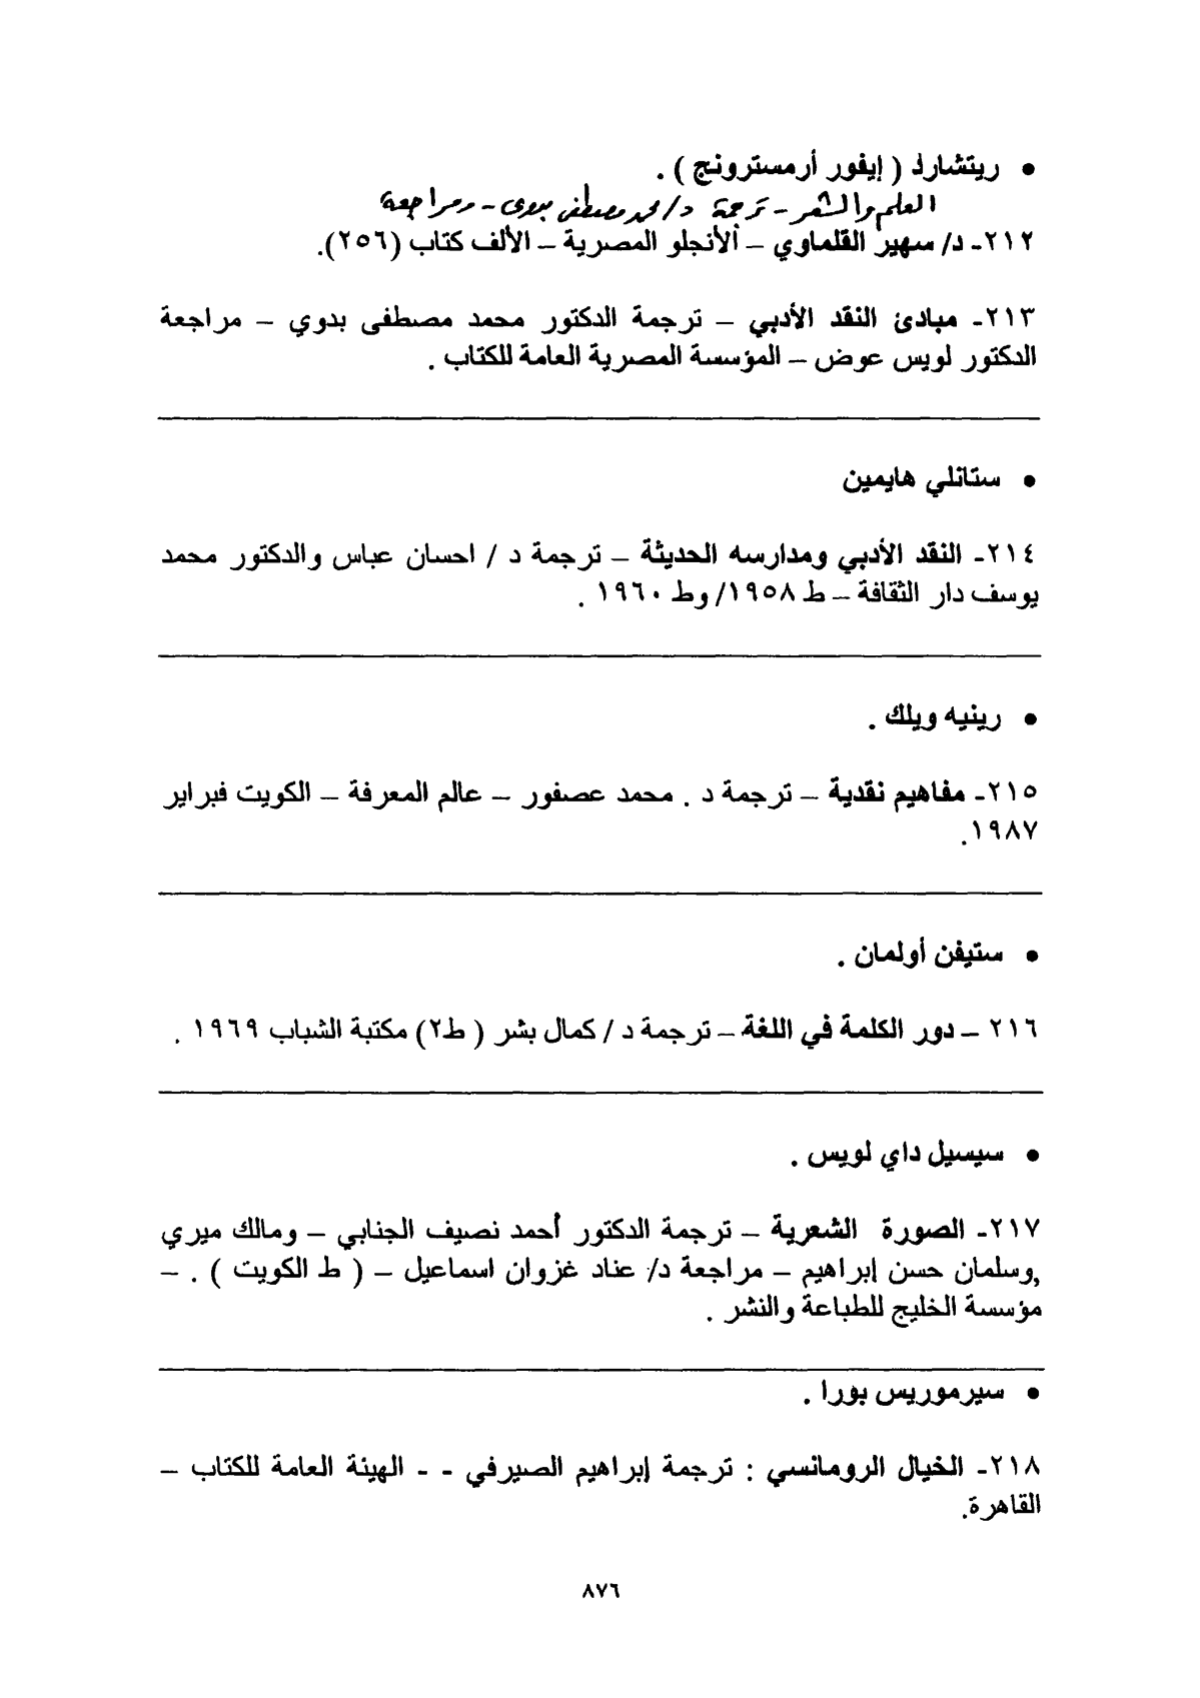 • ريتشارد ( إيفور أرمسترونج ) .
العلم والشعر - ترجمة د/ محمد مصطفى بدوى - ومراجعة
٢١٢- د/ سهير القلماوي – ألأنجلو المصرية – الألف كتاب (٢٥٦).
٢١٣- مبادئ النقد الأدبي – ترجمة الدكتور محمد مصطفى بدوي – مراجعة
الدكتور لويس عوض – المؤسسة المصرية العامة للكتاب .
• ستانلي هايمين
٢١٤- النقد الأدبي ومدارسه الحديثة – ترجمة د / احسان عباس والدكتور محمد
يوسف دار الثقافة – ط ١٩٥٨/ وط ١٩٦٠ .
• رينيه ويلك .
٢١٥- مفاهيم نقدية – ترجمة د . محمد عصفور – عالم المعرفة – الكويت فبراير
١٩٨٧.
• ستيفن أولمان .
٢١٦ – دور الكلمة في اللغة – ترجمة د / كمال بشر ( ط٢) مكتبة الشباب ١٩٦٩ .
• سيسيل داي لويس .
٢١٧- الصورة الشعرية – ترجمة الدكتور أحمد نصيف الجنابي – ومالك ميري
,وسلمان حسن إبراهيم – مراجعة د/ عناد غزوان اسماعيل – ( ط الكويت ) . –
مؤسسة الخليج للطباعة والنشر .
• سيرموريس بورا .
٢١٨- الخيال الرومانسي : ترجمة إبراهيم الصيرفي - - الهيئة العامة للكتاب –
القاهرة.
٨٧٦